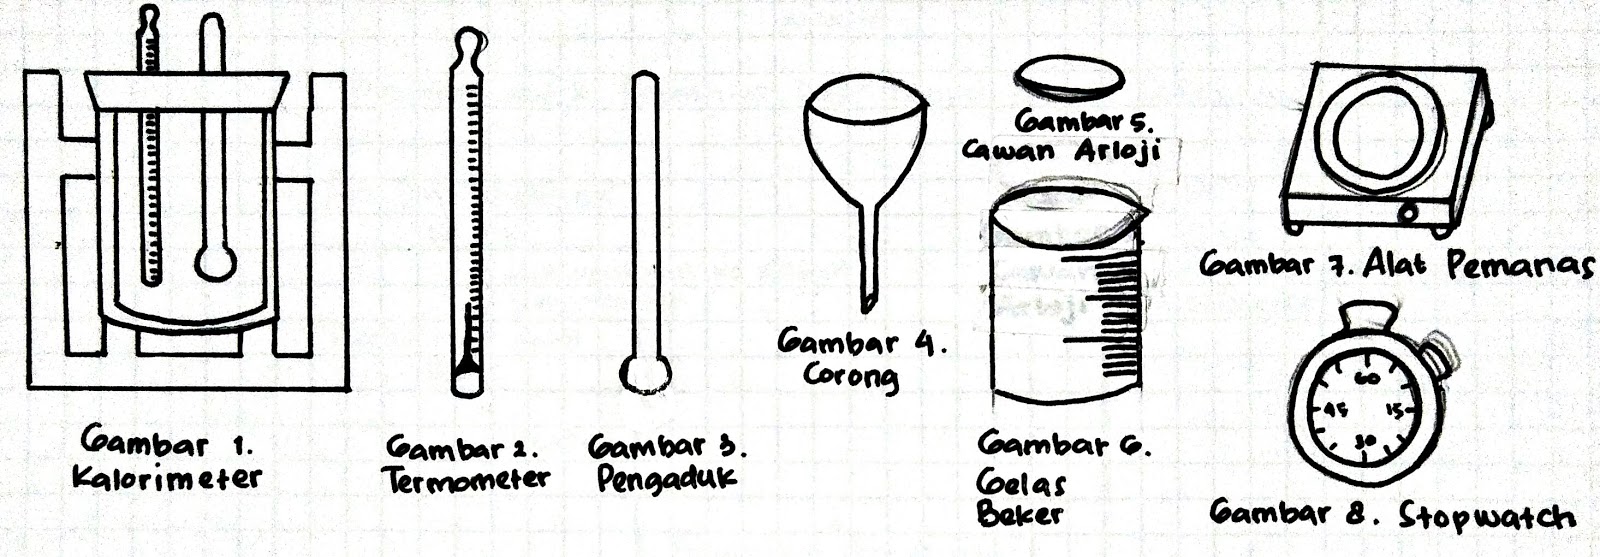 Gambar 1.
Kalorimeter
Gambar 2.
Termometer
Gambar 3.
Pengaduk
Gambar 4.
Corong
Gambar 5.
Cawan Arloji
Gambar 6.
Gelas
Beker
Gambar 7. Alat Pemanas
60
45 15
30
Gambar 8. Stopwatch